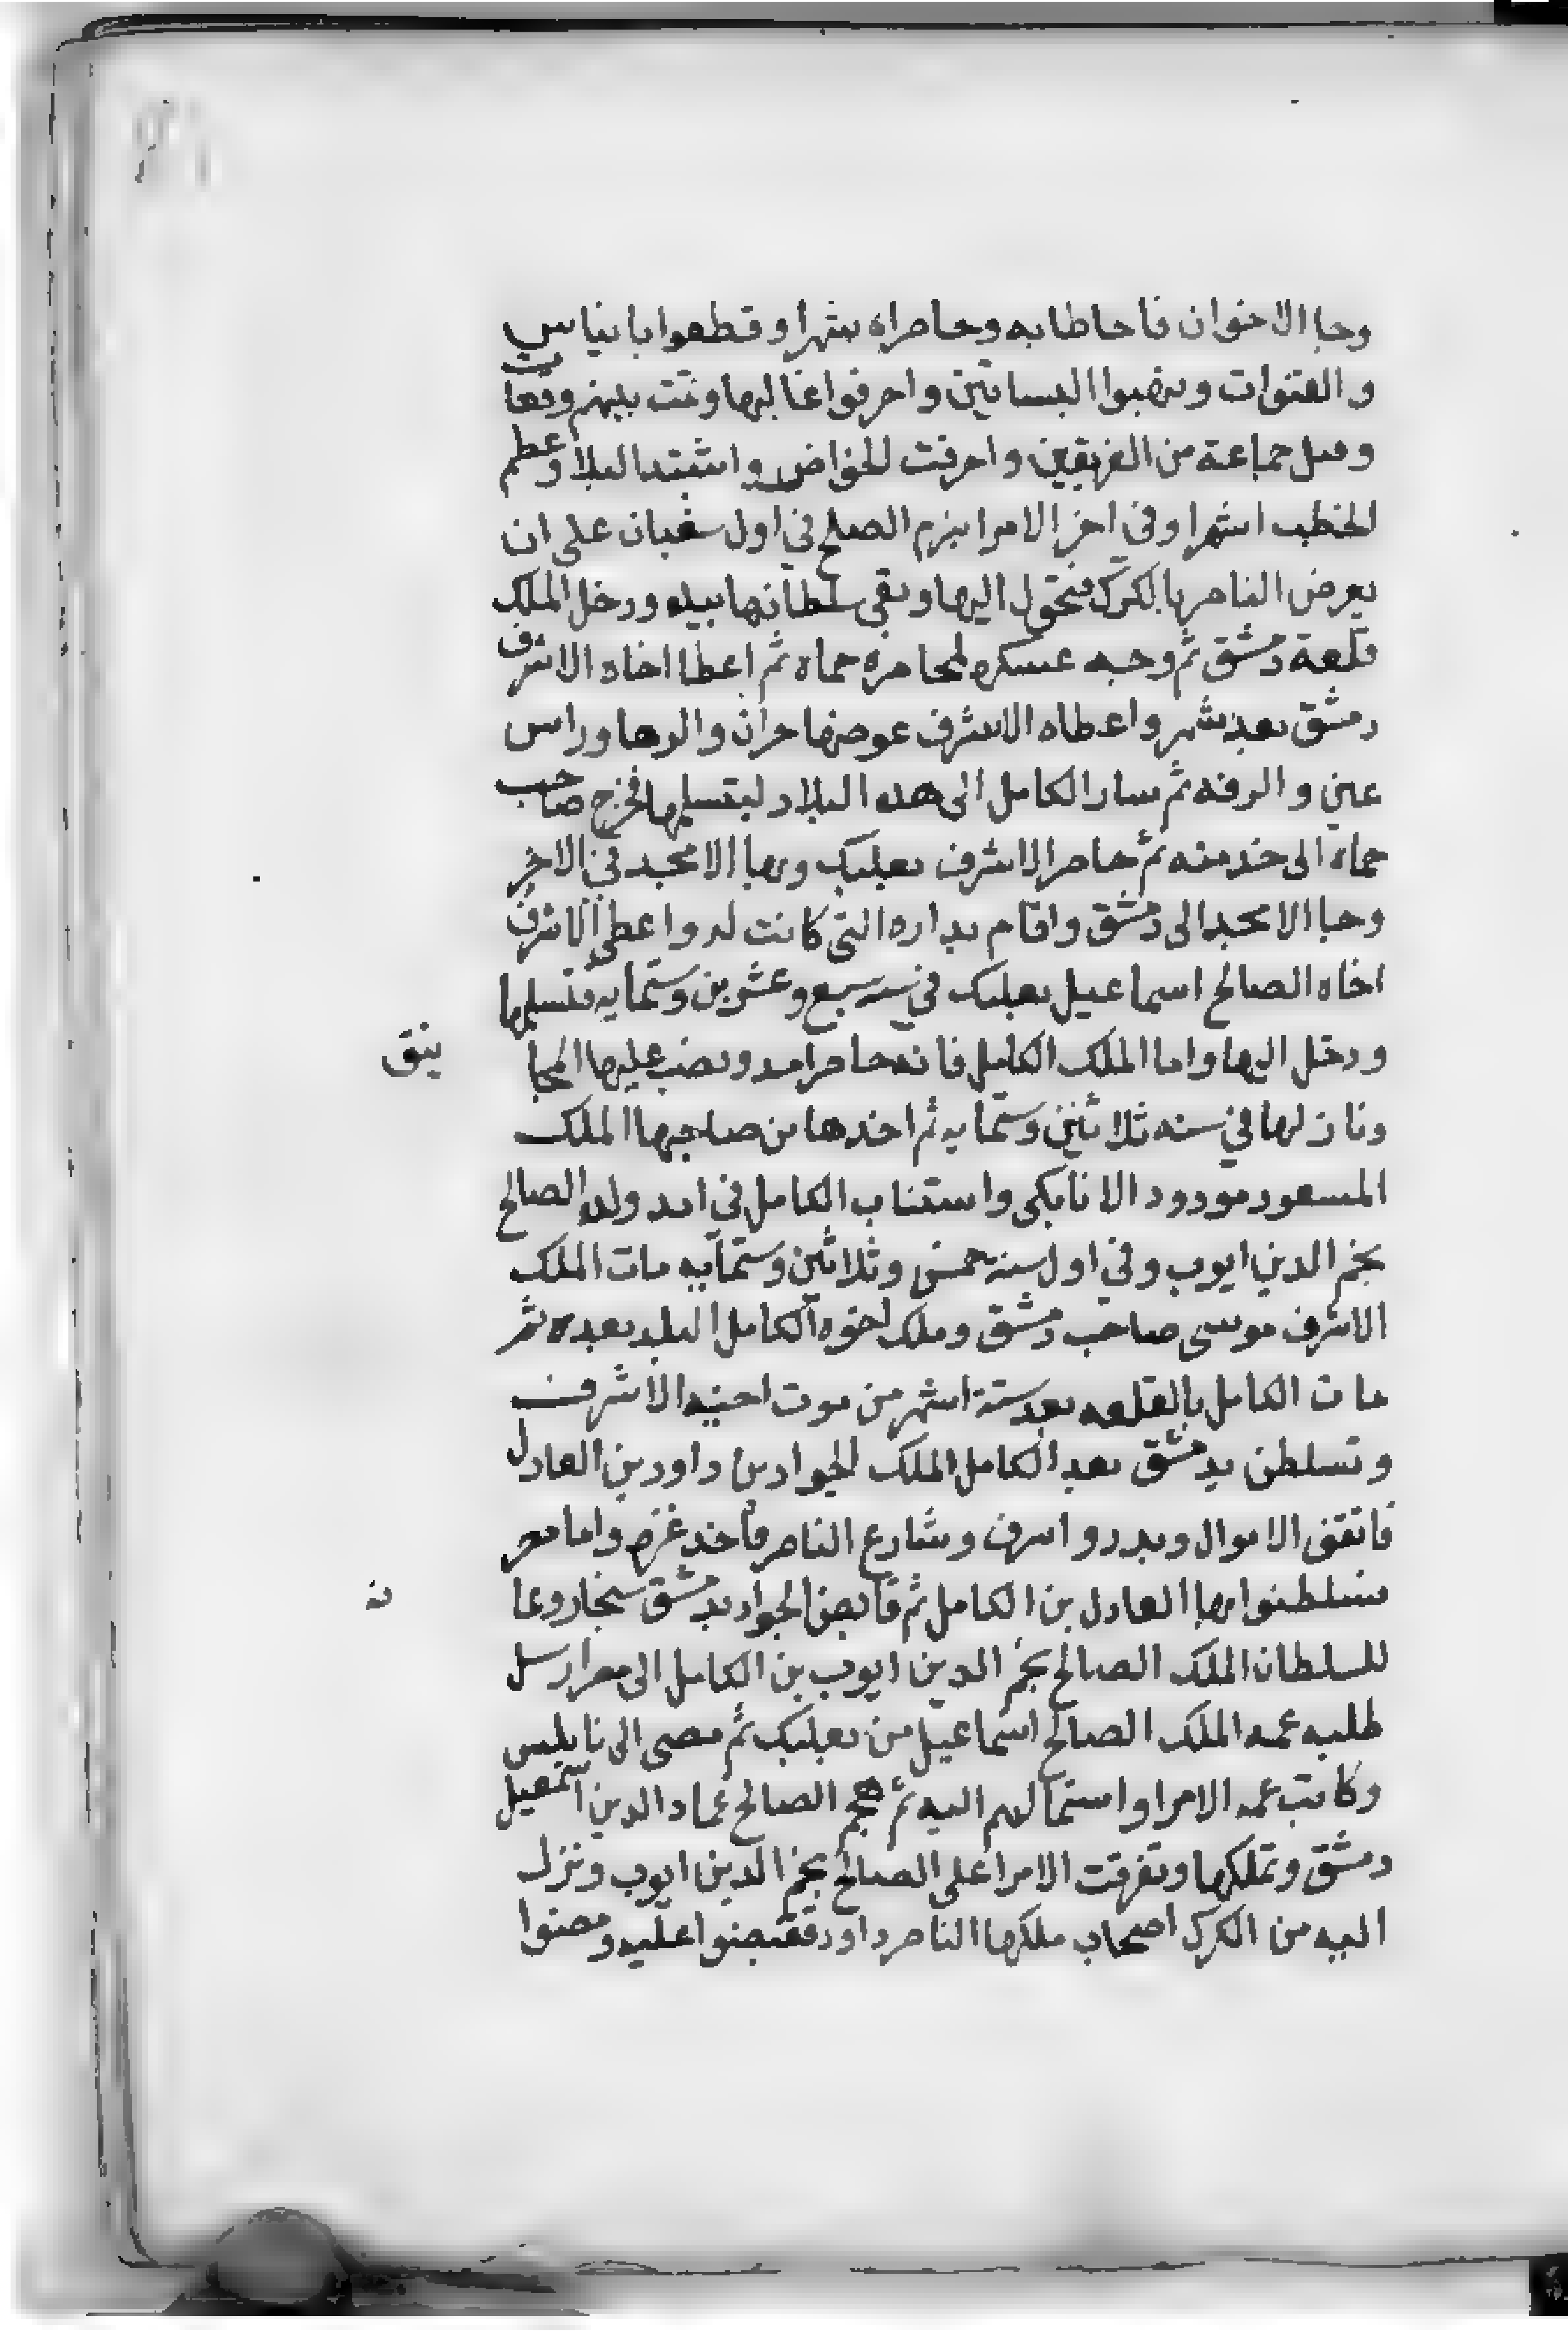 وجا الاخوان فاحاطا به وحاصراه شهرا وقطعوا باناس
والقنوات ونهبوا البساتين واحرقوا غالبها وتمت بينهم وقعات
وقتل جماعة من الفريقين واحرقت الحواضر واشتد البلا وعظم
الخطب اشهرا وفي اخر الامر ابرم الصلح في اول شعبان على ان
يعوض الناصر بالكرك فتحول اليها وبقي سلطانها بيده ودخل الملك
قلعة دمشق ثم وجه عسكره لمحاصرة حماه ثم اعطا اخاه الاشرف
دمشق بعد شهر واعطاه الاشرف عوضها حران والرها وراس
عين والرقه ثم سار الكامل الى هذه البلاد ليتسلمها فخرج صاحب
حماه الى خدمته ثم حاصر الاشرف بعلبك وبها الامجد في الاخر
وجا الامجد الى دمشق واقام بداره التي كانت له واعطى الاشرف
اخاه الصالح اسماعيل بعلبك في سنه سبع وعشرين وستمايه فتسلمها
ودخل اليها واما الملك الكامل فانه حاصر امد ونصب عليها المجا نيق
ونازلها في سنه ثلاثين وستمايه ثم اخدها من صاحبها الملك
المسعود مودود الاتابكى واستناب الكامل في امد ولده الصالح
نجم الدين ايوب وفي اول سنه خمس وثلاثين وستمايه مات الملك
الاشرف موسى صاحب دمشق وملك اخوه الكامل البلد بعده ثم
مات الكامل بالقلعه بعد ستة اشهر من موت اخيه الاشرف
وتسلطن بدمشق بعد الكامل الملك الجواد بن داود بن العادل
فانفق الاموال وبدر واسرف وشارع الناصر فاخد غزه واما مصر
فسلطنوا بها العادل بن الكامل ثم قايض الجواد بدمشق سنجار وعا نه
للسلطان الملك الصالح نجم الدين ايوب بن الكامل الى مصر ارسل
طلبه عمه الملك الصالح اسماعيل من بعلبك ثم مضى الى نابلس
وكاتب عمه الامرا واستمالهم اليه ثم هجم الصالح عماد الدين اسمعيل
دمشق وتملكها وتفرقت الامرا على الصالح نجم الدين ايوب ونزل
اليه من الكرك اصحاب ملكها الناصر داود فقبضوا عليه ومضوا